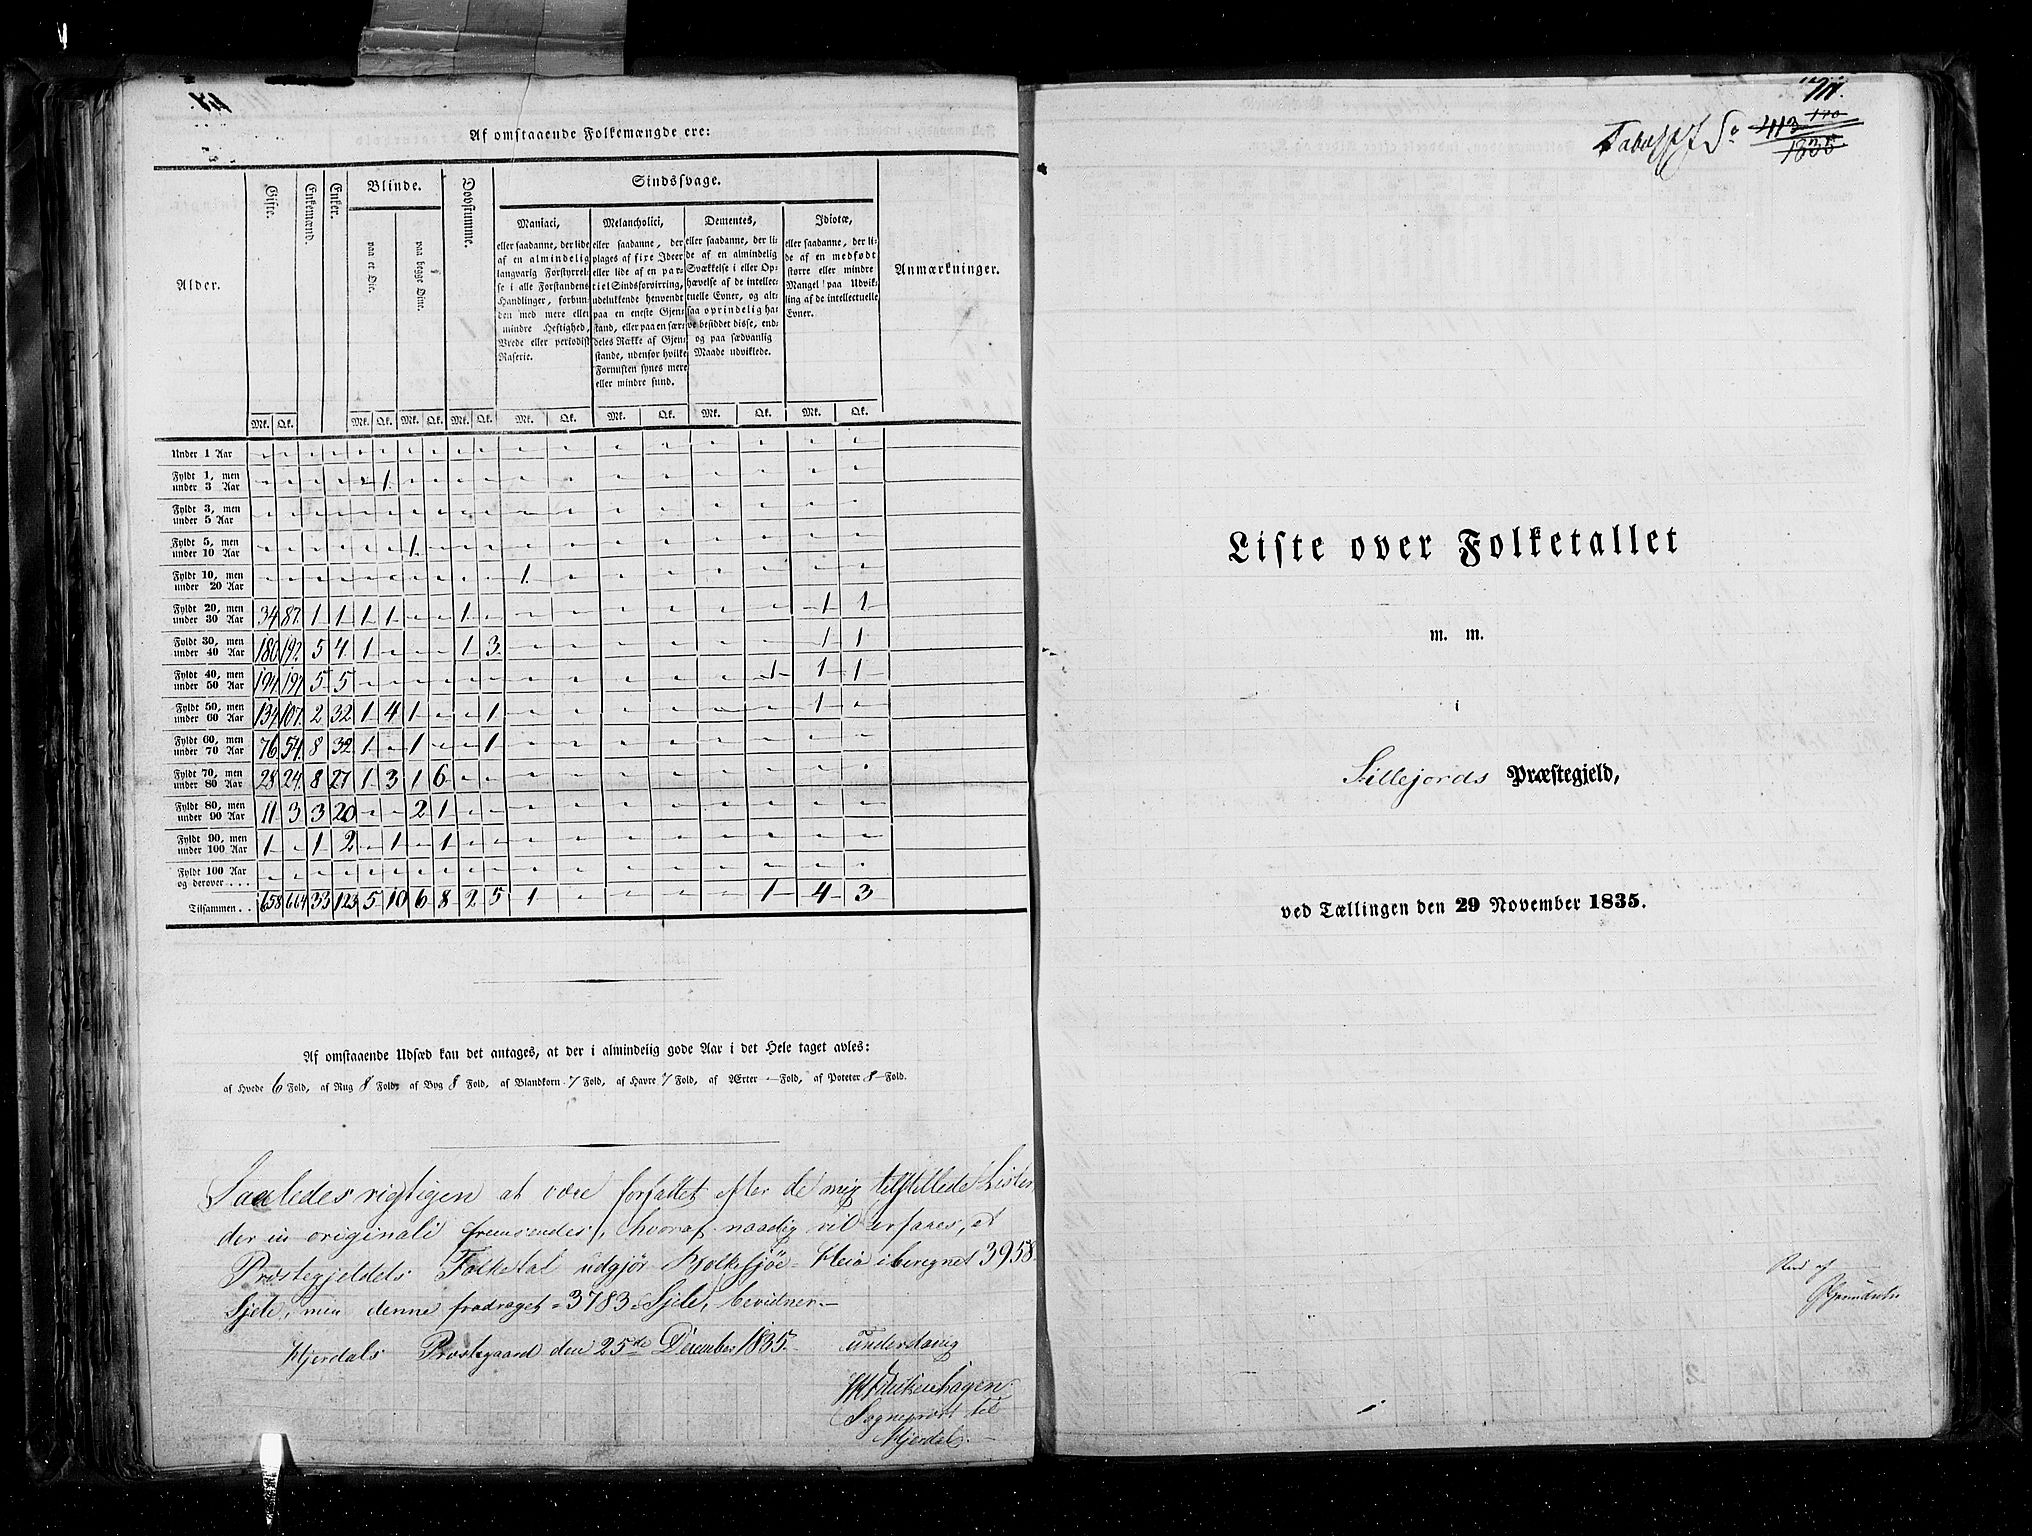 Af omstaaende Folkemængde ere:
Alder.
Gifte.
Enkemænd.
Enker.
Blinde.
paa et Øie.
paa begge Øine.
Døvstumme.
Sindssvage.
Maniaci,
eller saadanne, der lide
af en almindelig
langvarig Forstyrrel-
se i alle Forstandens
Handlinger, forbun-
den med mere eller
mindre Heftighed,
Vrede eller periodisk
Raserie.
Melancholici,
eller saadanne, der
plages af fixe Ideer
eller lide af en par-
tiel Sindsforvirring,
udelukkende henvendt
paa en eneste Gjen-
stand, eller paa en sær-
deles Række af Gjen-
stande, udenfor hvilke
Fornuften synes mere
eller mindre sund.
Dementes,
eller saadanne, der li-
de af en almindelig
Svækkelse i eller Op-
hævelse af de intellec-
tuelle Evner, og alt-
saa oprindelig ha-
ve besiddet disse, end-
og paa sædvanlig
Maade udviklede.
Idiotæ,
eller saadanne, der li-
de af en medfødt
større eller mindre
Mangel paa Udvik-
ling af de intellectuelle
Evner.
Anmærkninger.
Mk. Qk. Mk. Qk. Mk. Qk. Mk. Qk. Mk. Qk. Mk. Qk. Mk. Qk. Mk. Qk.
Under 1 Aar
Fyldt 1, men
under 3 Aar 1
Fyldt 3, men
under 5 Aar
Fyldt 5, men
under 10 Aar 1
Fyldt 10, men
under 20 Aar 1
Fyldt 20, men
under 30 Aar 34 87 1 1 1 1 1 1 1
Fyldt 30, men
under 40 Aar 180 192 5 4 1 1 3 1 1
Fyldt 40, men
under 50 Aar 194 197 5 5 1 1 1
Fyldt 50, men
under 60 Aar 134 107 2 32 1 4 1 1 1
Fyldt 60, men
under 70 Aar 76 54 8 32 1 1 1
Fyldt 70, men
under 80 Aar 28 24 8 27 1 3 1 6
Fyldt 80, men
under 90 Aar 11 3 3 20 2 1
Fyldt 90, men
under 100 Aar 1 1 2 1 1
Fyldt 100 Aar
og derover . . .
Tilsammen . . 658 664 33 123 5 10 6 8 2 5 1 1 4 3
Af omstaaende Udsæd kan det antages, at der i almindelig gode Aar i det Hele taget avles:
af Hvede 6 Fold, af Rug 8 Fold, af Byg 8 Fold, af Blandkorn 7 Fold, af Havre 7 Fold, af Ærter - Fold, af Poteter 8 Fold.
Saaledes rigtigen at være forfattet efter de mig tilstillede Lister
der in originali fremsendes, hvoraf naadig vil erfares, at
Præstegjeldets Folketal udgjør Bolkesjøe-Heia iberegnet 3958
Sjele, men denne fradraget 3783 Sjele, bevidner
Hjerdals Præstegaard den 25de December 1835.
underdanig
Sognepræst til
Hjerdal
1835
Liste over Folketallet
m. m.
i
Sillejords Præstegjeld,
ved Tællingen den 29 November 1835.
Revd af